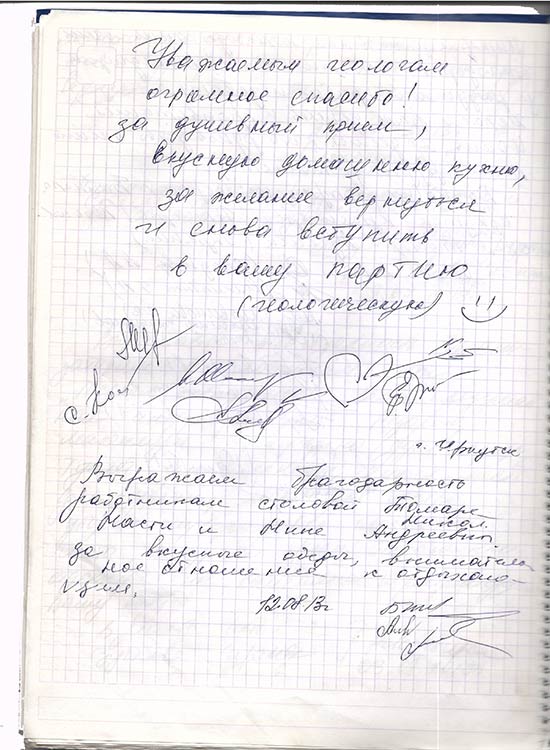 Уважаемым геологам
огромное спасибо!
за душевный прием,
вкусную домашнюю кухню,
за желание вернуться
и снова вступить
в вашу партию
(геологическую)
г. Иркутск
Выражаем благодарность
работникам столовой Тамаре
Никол.
Насти и Нине Андреевны
за вкусные обеды, вниматель
ное отношение к отдыхаю-
щим.
12.08 13г